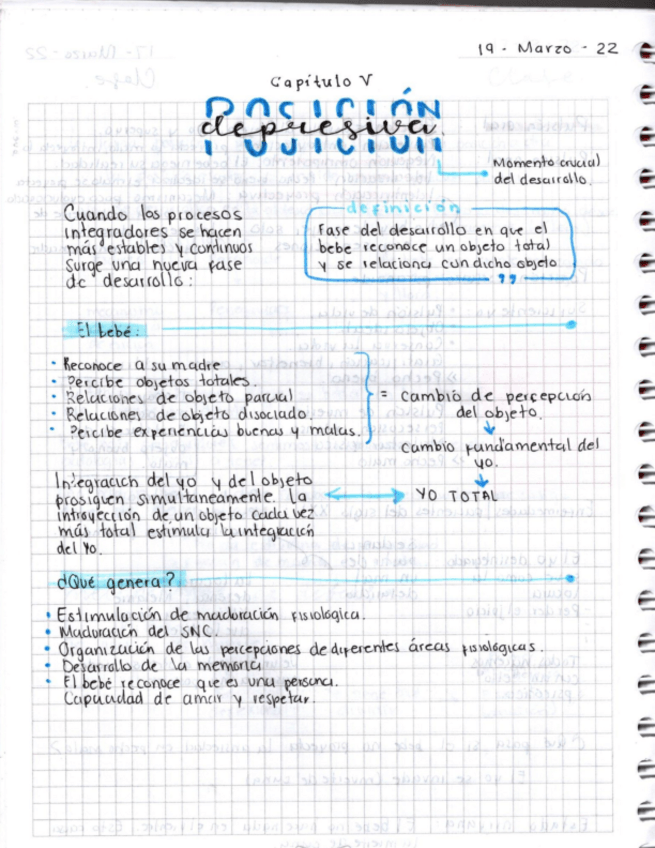 19 - Marzo - 22
Capítulo V
POSICIÓN
depresiva.
Momento crucial
del desarrollo.
Cuando los procesos
integradores se hacen
más estables y continuos
surge una nueva fase
de desarrollo:
definición
Fase del desarrollo en que el
bebe reconoce un objeto total
y se relaciona con dicho objeto
"
El bebé:
• Reconoce a su madre
• Percibe objetos totales.
• Relaciones de objeto parcial
• Relaciones de objeto disociado.
• Percibe experiencias buenas y malas.
= cambio de percepción
del objeto.
cambio fundamental del
yo.
YO TOTAL
Integración del yo y del objeto
prosiguen simultaneamente. La
introyección de un objeto cada vez
más total estimula la integración
del Yo.
¿Qué genera?
• Estimulación de maduración fisiológica.
• Maduración del SNC.
• Organización de las percepciones de diferentes áreas fisiológicas.
• Desarrollo de la memoria
• El bebé reconoce que es una persona.
Capacidad de amar y respetar.